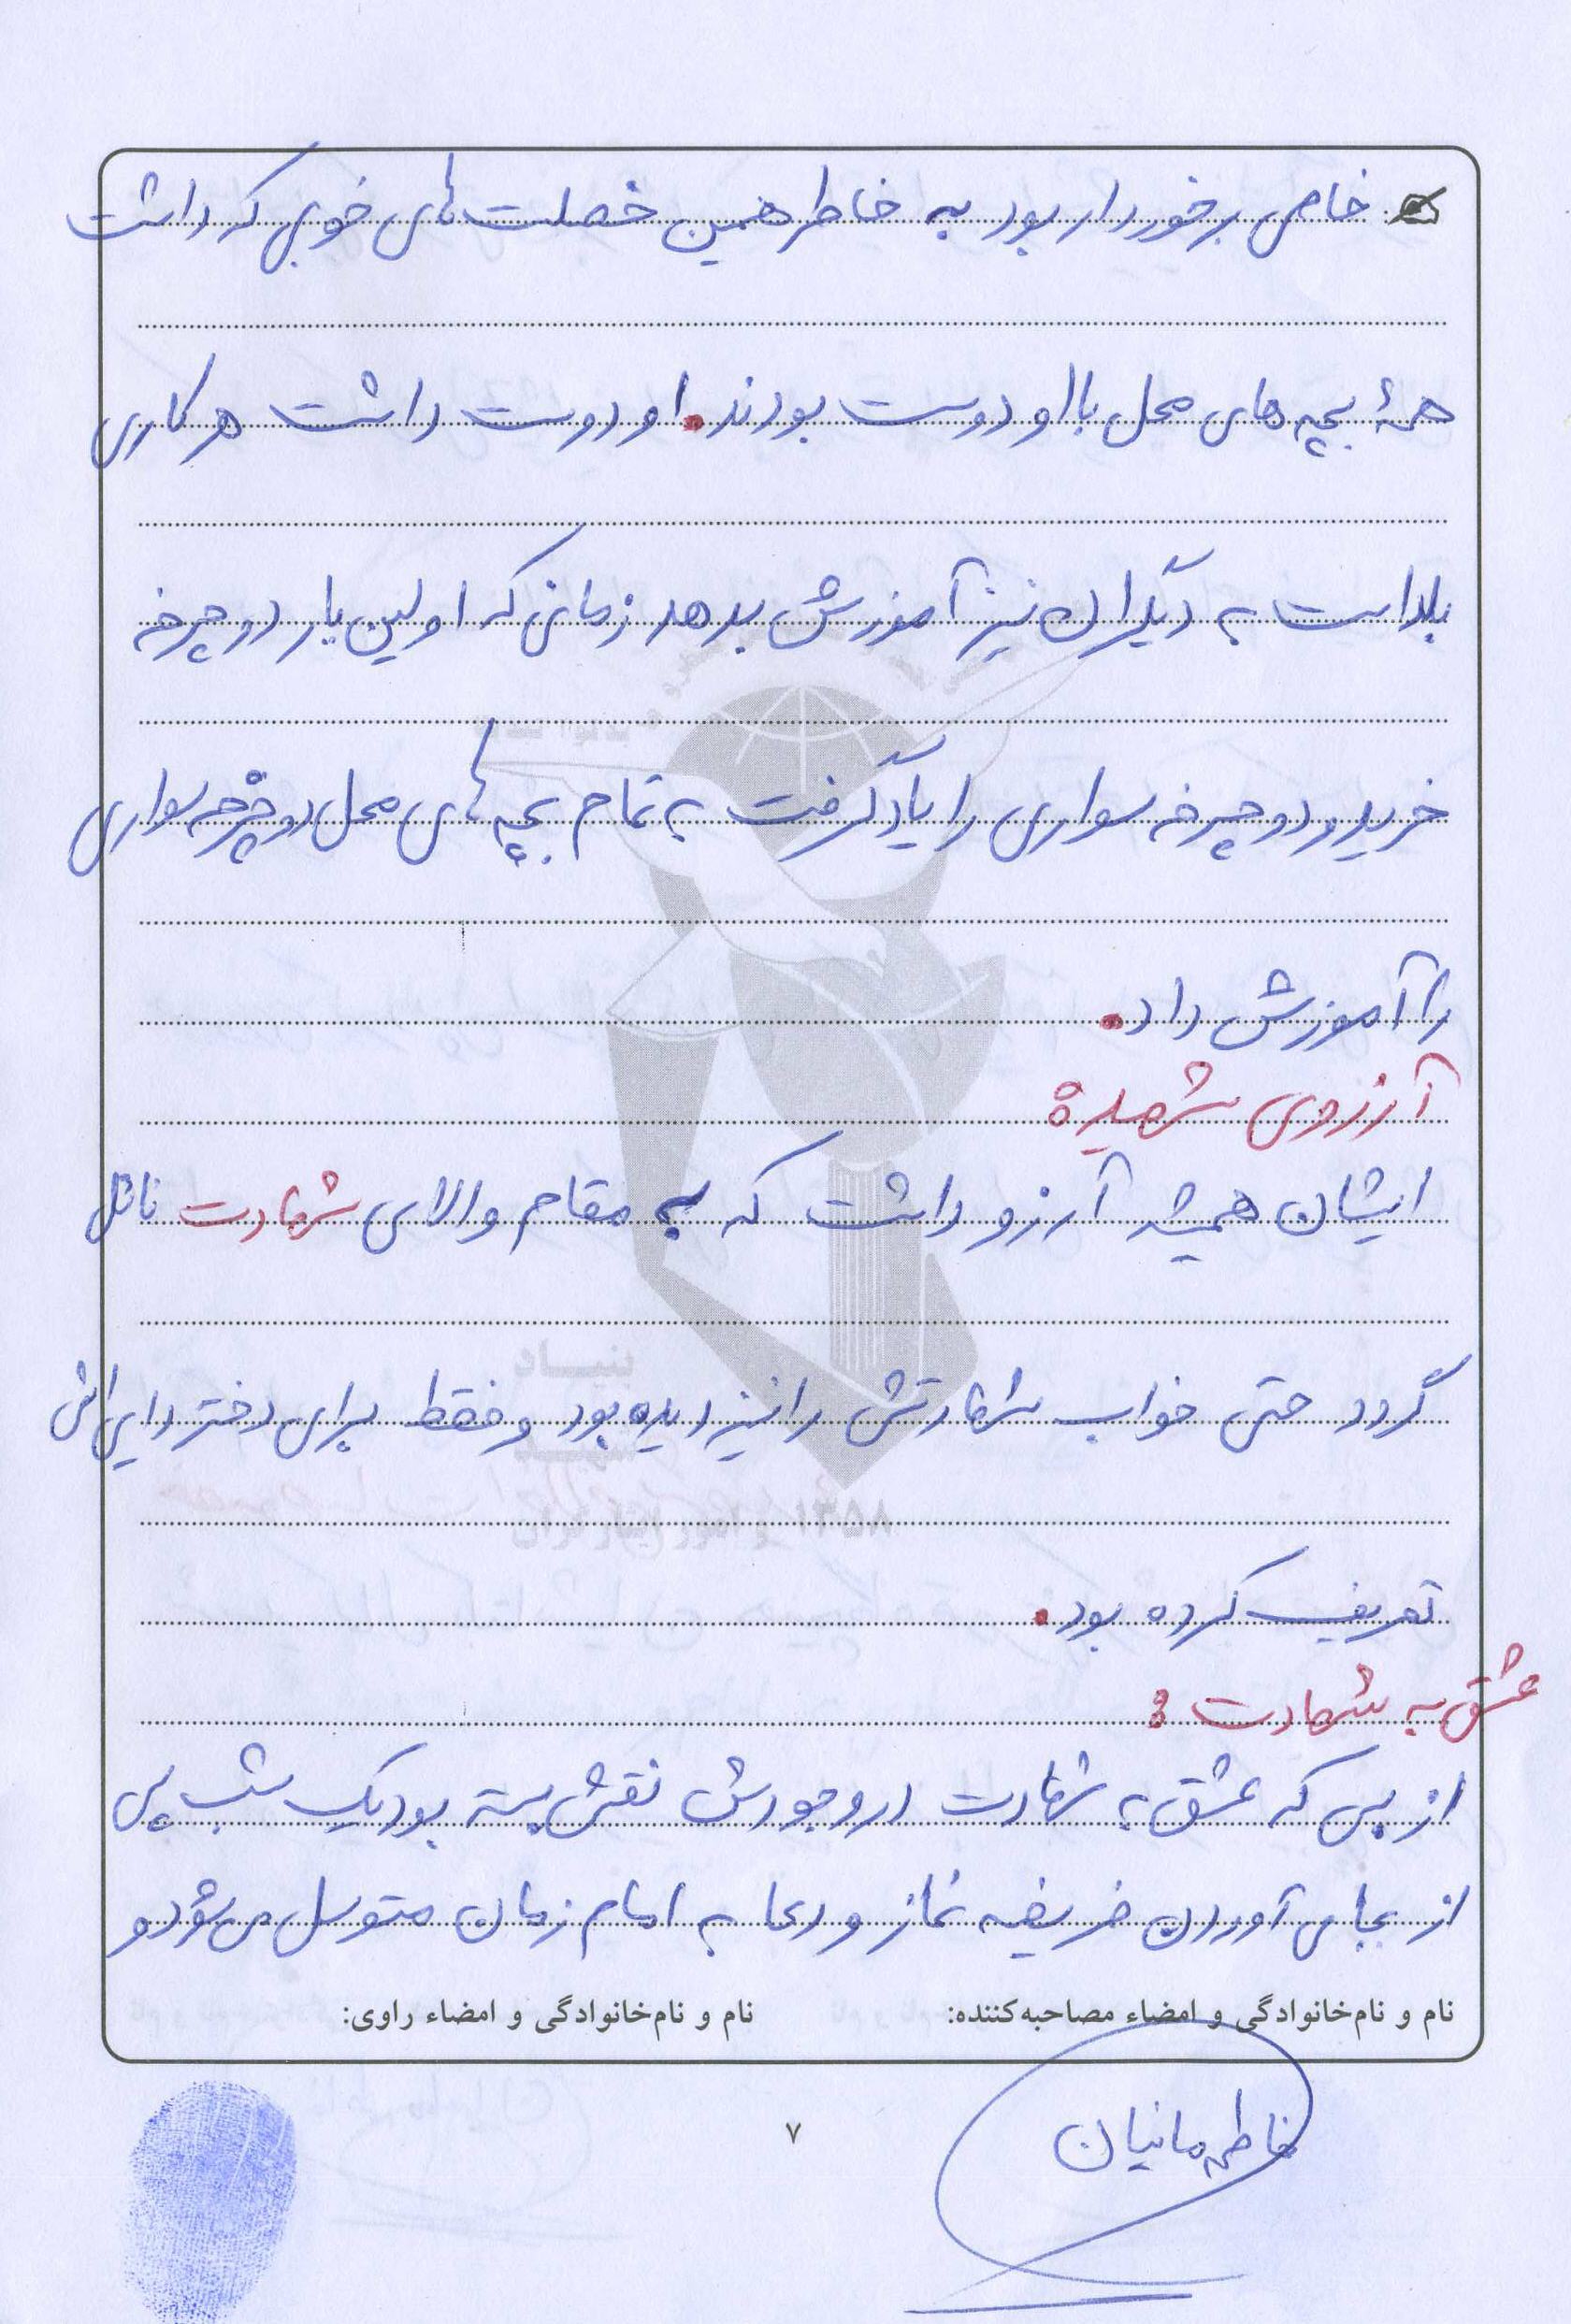 خاصی برخوردار بود به خاطر همین خصلت های خوبی که داشت
همهٔ بچه های محل با او دوست بودند. او دوست داشت هر کاری
بلداست به دیگران نیز آموزش بدهد زمانی که اولین بار دوچرخه
خرید و دوچرخه سواری را یاد گرفت به تمام بچه های محل دوچرخه سواری
را آموزش داد.
آرزوی شهیده
ایشان همیشه آرزو داشت که به مقام والای شهادت نائل
گردد حتی خواب شهادتش را نیز دیده بود و فقط برای دختر دایی اش
تعریف کرده بود.
عشق به شهادت:
از بس که عشق به شهادت در وجودش نقش بسته بود یک شب پس
از بجای آوردن فریضه نماز و دعا به امام زمان متوسل می شود و
نام و نام‌خانوادگی و امضاء مصاحبه‌کننده:
نام و نام‌خانوادگی و امضاء راوی:
فاطمه مانیان
۷
بنیاد
و امور ایثارگران
۱۳۵۸